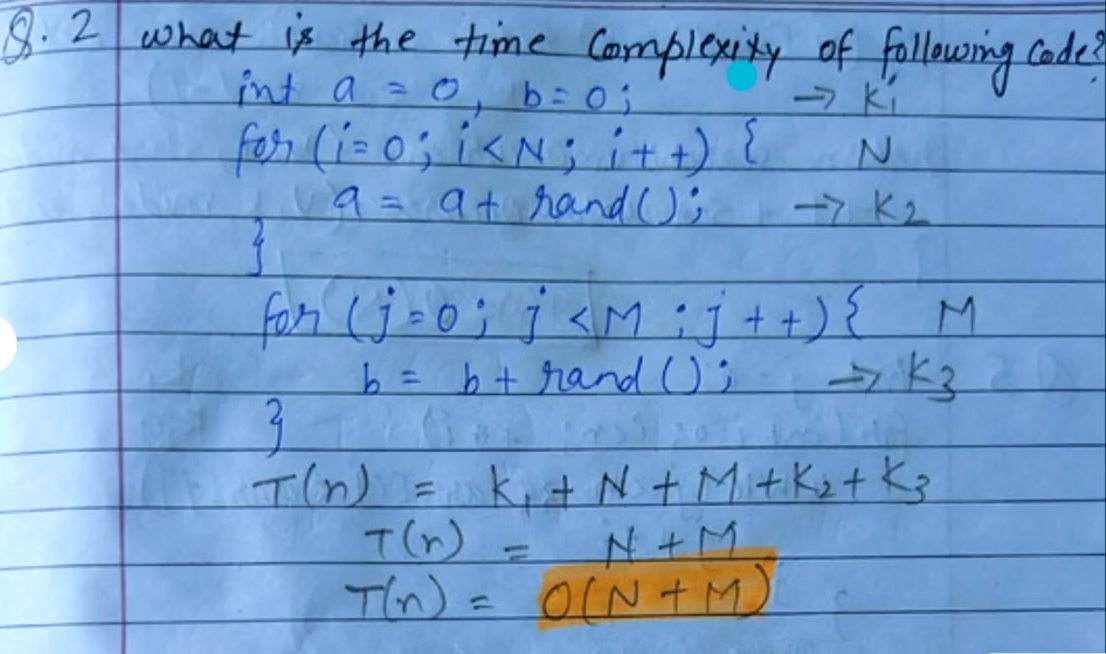 Q. 2 what is the time Complexity of following Code?
int a = 0, b = 0; → K1
for (i=0; i<N; i++) { N
a = a + rand(); → K2
}
for (j=0; j<M; j++) { M
b = b + rand(); → K3
}
T(n) = K1 + N + M + K2 + K3
T(n) = N + M
T(n) = O(N + M)